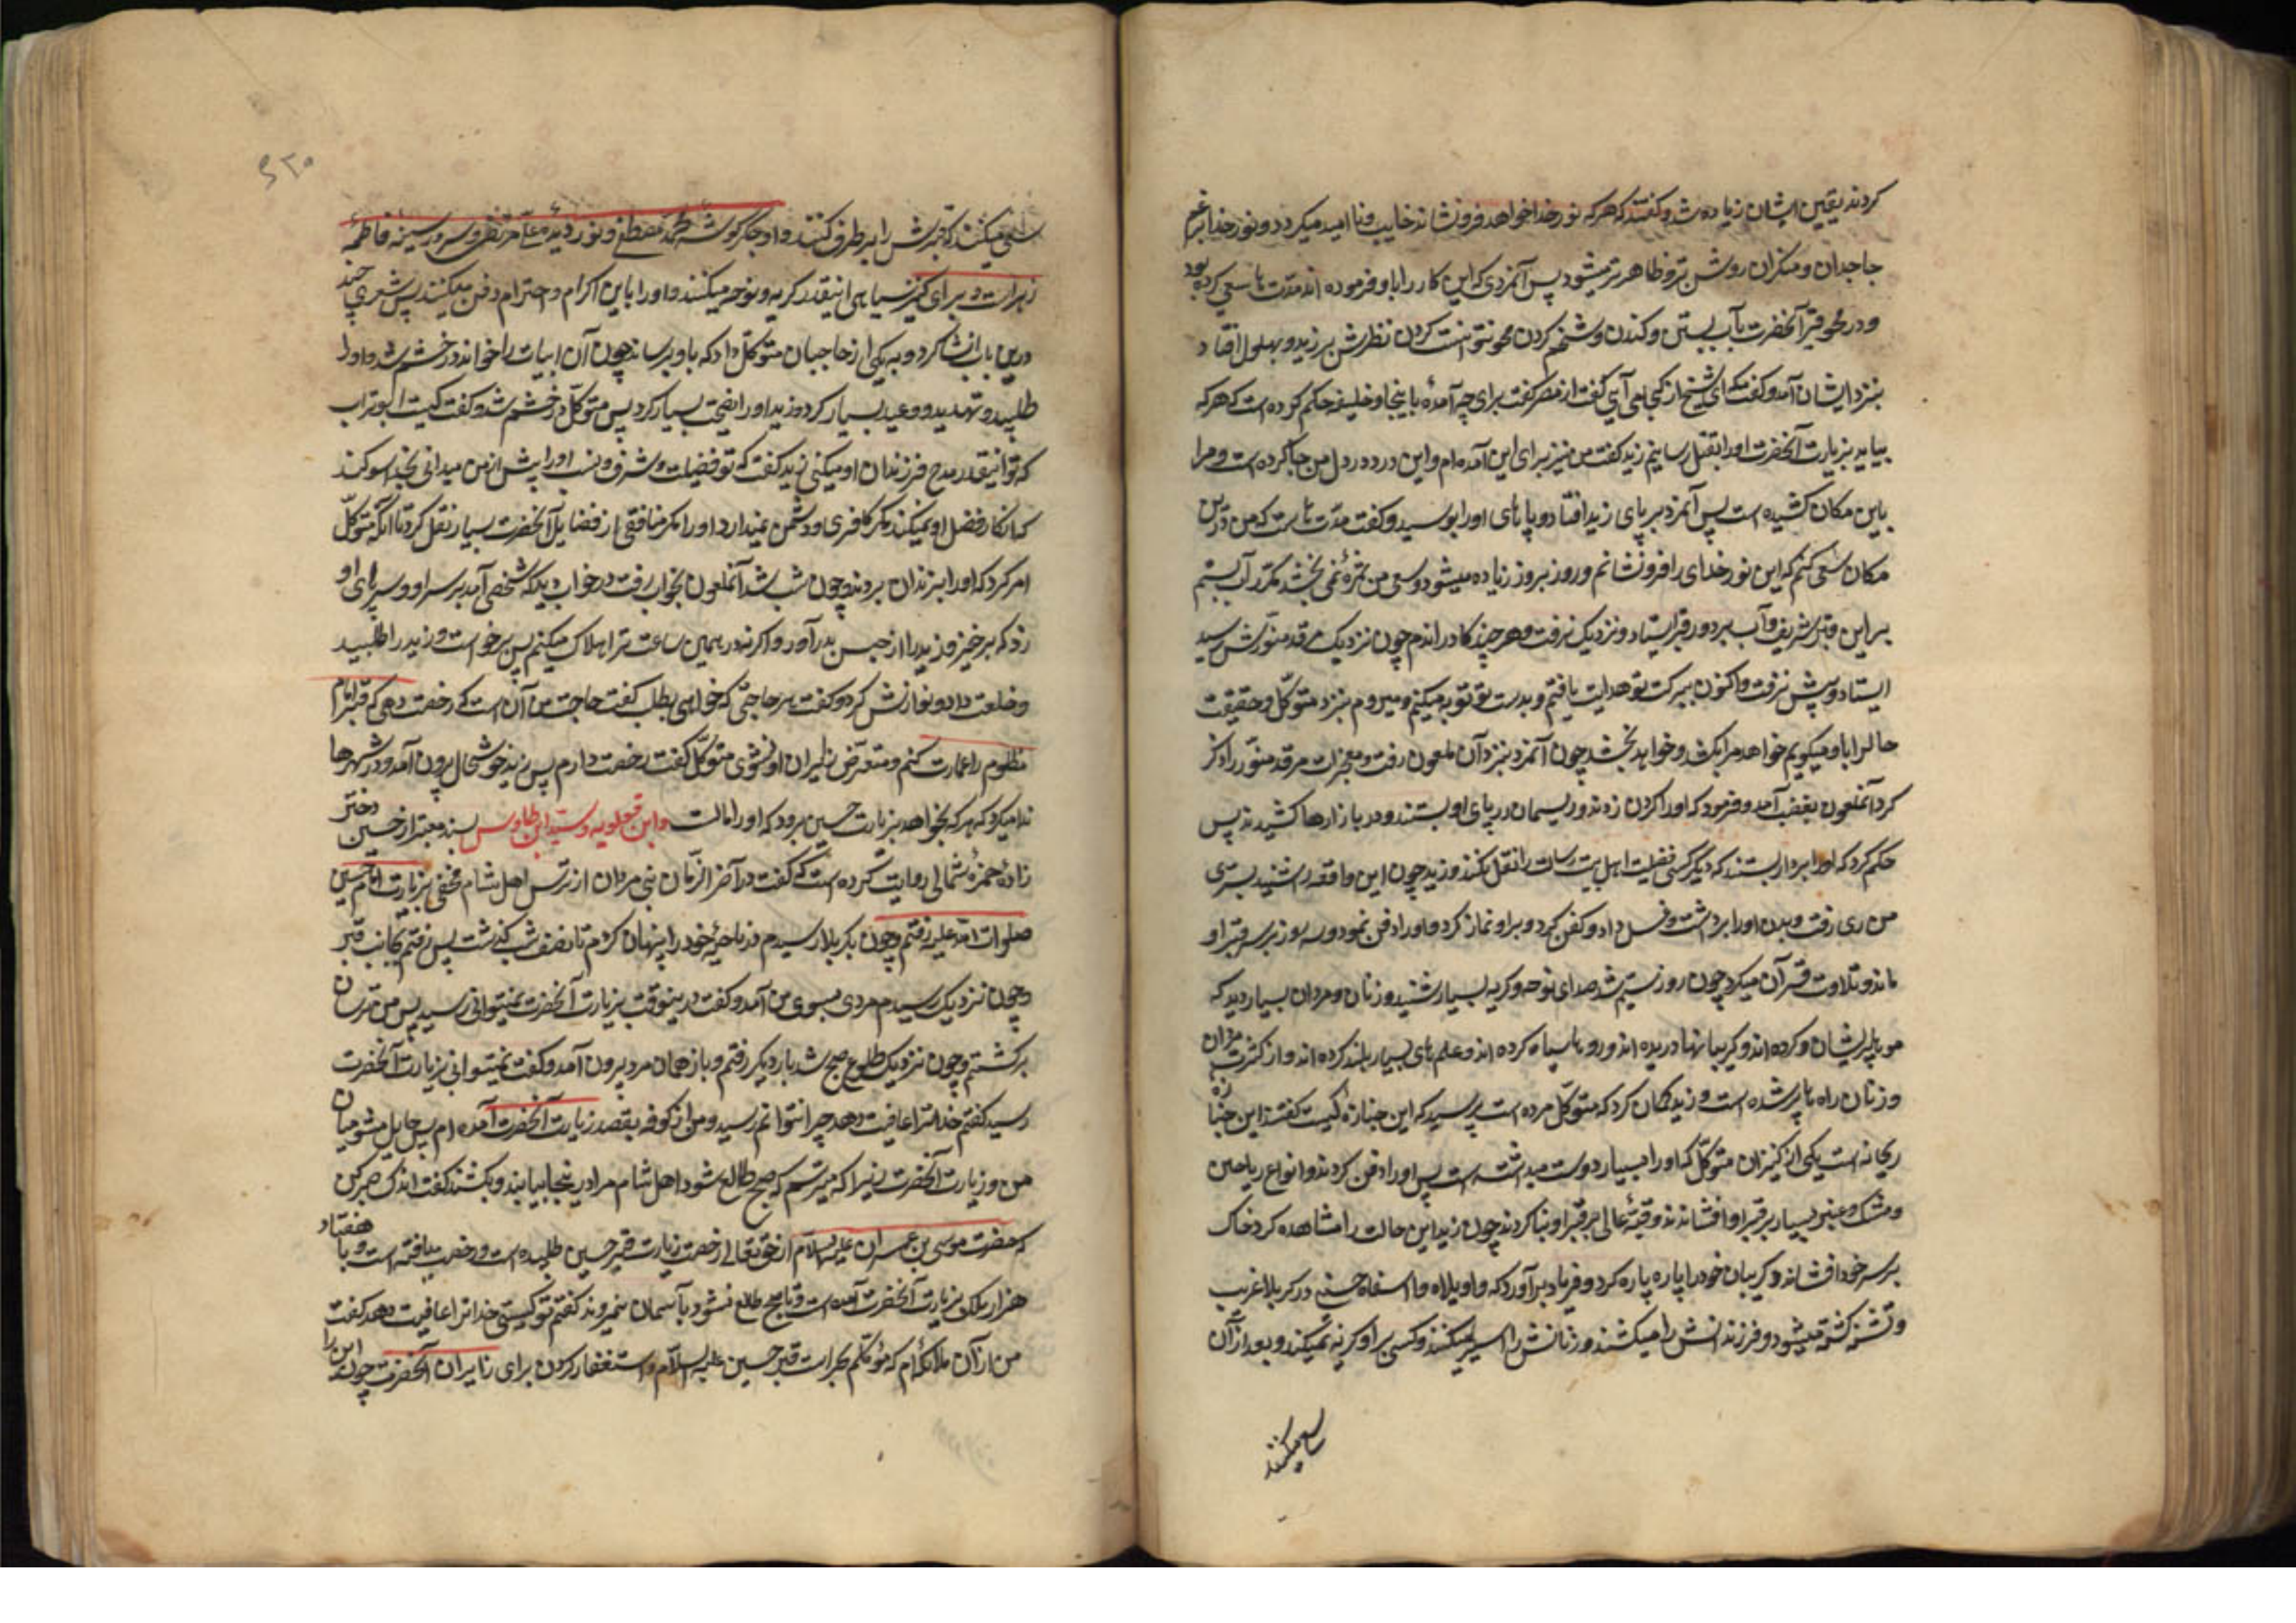 کردند یقین ایشان زیاده شد و گفتند که هر که نور خدا خواهد فرونشاند خایب و ناامید میگردد و نور خدا برغم
جاحدان و منکران روشن تر و ظاهرتر میشود پس آنمردی که این کار را باو فرموده اند مدت ها سعی کرده بود
و در محو قبر آنحضرت بآب بستن و کندن و شخم کردن محو نتوانست کردن نظرش بر زید و بهلول افتاد
بنزد ایشان آمد و گفت ای شیخ از کجا می آیی گفت از مصر گفت برای چه آمدهٔ باینجا و خلیفه حکم کرده است که هر که
بیاید بزیارت آنحضرت او را بقتل رسانیم زید گفت من نیز برای این آمده ام و این درد در دل من جا کرده است و مرا
باین مکان کشیده است پس آنمرد بر پای زید افتاد و پاهای او را بوسید و گفت مدت هاست که من درین
مکان سعی میکنم که این نور خدای را فرونشانم و روز بروز زیاده میشود و سعی من ثمرهٔ نمی بخشد مکرر آب بستم
بر این قبر شریف و آب بر دور قبر ایستاد و نزدیک نرفت و هر چند گاو راندم چون نزدیک مرقد منورش رسید
ایستاد و پیش نرفت و اکنون ببرکت تو هدایت یافتم و بدست تو توبه میکنم و میروم بنزد متوکل و حقیقت
حال را باو میگویم خواهد مرا بکشد و خواهد بخشد چون آنمرد بنزد آن ملعون رفت و معجزات مرقد منور را ذکر
کرد آنملعون بغضب آمد و فرمود که او را گردن زدند و ریسمان در پای او بستند و در بازارها کشیدند پس
حکم کرد که او را بردار بستند که دیگر کسی فضیلت اهل بیت رسالت را نقل نکند و زید چون این واقعه را شنید بسوی
من رای رفت و بدن او را برداشت و غسل داد و کفن کرد و براو نماز کرد و او را دفن نمود و سه روز بر سر قبر او
ماند و تلاوت قرآن میکرد چون روز سیم شد صدای نوحه و گریه بسیار شنید و زنان و مردان بسیار دید که
موها پریشان کرده اند و گریبانها دریده اند و روها سیاه کرده اند و علم های بسیار بلند کرده اند و از کثرت مردان
و زنان راه ها پر شده است و زید گمان کرد که متوکل مرده است پرسید که این جنازه کیست گفتند این جنازه
ریحانه است یکی از کنیزان متوکل که او را بسیار دوست میداشته است پس او را دفن کردند و انواع ریاحین
و مشک و عنبر بسیار بر قبر او افشاندند و قبهٔ عالی بر قبر او بنا کردند چون زید این حالت را مشاهده کرد خاک
بر سر خود افشاند و گریبان خود را پاره پاره کرد و فریاد برآورد که واویلاه وا اسفاه حسین در کربلا غریب
و تشنه کشته میشود و فرزندانش را میکشند و زنانش را اسیر میکنند و کسی براو گریه نمیکند و بعد از آن
سعی میکنند
سعی میکنند که قبرش را برطرف کنند و او جگرگوشهٔ محمد مصطفی و نور دیدهٔ علی مرتضی و سرور سینه فاطمهٔ
زهراست و برای کنیز سیاهی اینقدر گریه و نوحه میکنند و او را باین اکرام و احترام دفن میکنند پس شعری چند
درین باب انشا کرد و بیکی از حاجبان متوکل داد که باو برساند چون آن ابیات را خواند در خشم شد و او را
طلبید و تهدید و وعید بسیار کرد و زید او را نصیحت بسیار کرد پس متوکل در خشم شد و گفت کیست ابوتراب
که تو اینقدر مدح فرزندان او میکنی زید گفت که تو فضیلت و شرف و نسب او را بیش از من میدانی بخدا سوگند
که انکار فضل او نمیکند مگر کافری و دشمن نمیدارد او را مگر منافقی از فضایل آنحضرت بسیار نقل کرد تا آنکه متوکل
امر کرد که او را بزندان بردند و چون شب شد آنملعون بخواب رفت در خواب دید که شخصی آمد بر سر او و سر پای او
زد که برخیز و زید را از حبس بدر آور و اگر نه در همین ساعت ترا هلاک میکنم پس برخواست و زید را طلبید
و خلعت داد و نوازش کرد و گفت هر حاجتی که خواهی بطلب گفت حاجت من آن است که رخصت دهی که قبر امام
مظلوم را عمارت کنم و متعرض زایران او نشوی متوکل گفت رخصت دارم پس زید خوشحال بیرون آمد و در شهرها
ندا میکرد که هر که بخواهد بزیارت حسین برود که او را مانست و ابن قولویه و سید ابن طاوس بسند معتبر از حسین دختر
زادهٔ حمزهٔ ثمالی روایت کرده است که گفت در آخر الزمان بنی مروان از ترس اهل شام مخفی بزیارت امام حسین
صلوات الله علیه رفتم و چون بکربلا رسیدم در ناحیهٔ خود را پنهان کردم تا نصف شب گذشت پس رفتم بجانب قبر
و چون نزدیک رسیدم مردی بسوی من آمد و گفت درینوقت بزیارت آنحضرت نمیتوانی رسید پس من ترسان
برگشتم و چون نزدیک طلوع صبح شد بار دیگر رفتم و باز همان مرد بیرون آمد و گفت نمیتوانی بزیارت آنحضرت
رسید گفتم خدا ترا عافیت دهد چرا نتوانم رسید و من از کوفه بقصد زیارت آنحضرت آمده ام پس حایل مشو میان
من و زیارت آنحضرت زیرا که میترسم که صبح طالع شود و اهل شام مرا در اینجا بیابند و بکشند گفت اندکی صبر کن
که حضرت موسی بن عمران علیه السلام از حق تعالی رخصت زیارت قبر حسین طلبیده است و رخصت یافته است و با هفتاد
هزار ملک بزیارت آنحضرت آمده است و تا صبح طالع نشود بآسمان نمیروند گفتم تو کیستی خدا ترا عافیت دهد گفت
من از آن ملائکه ام که موکلم بحراست قبر حسین علیه السلام و استغفار کردن برای زایران آنحضرت چون این را